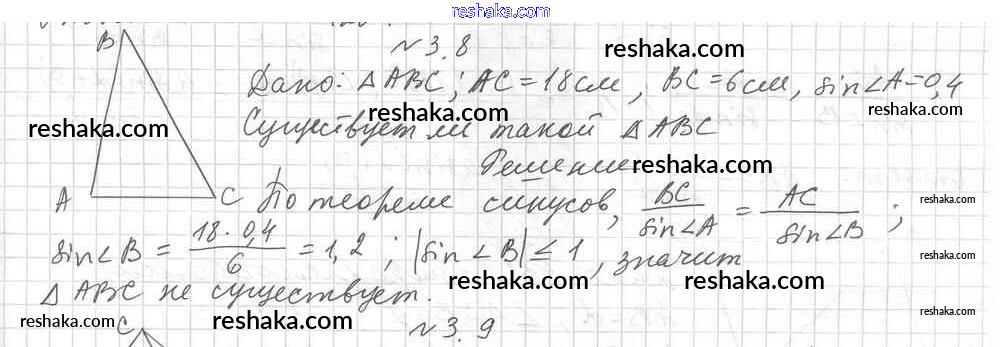 reshaka.com
№3.8
reshaka.com
B
Дано: △ABC; AC=18см, BC=6см, sin∠A=0,4
reshaka.com
reshaka.com
reshaka.com
Существует ли такой △ABC
Решение
reshaka.com
A
C
По теореме синусов, BC/sin∠A = AC/sin∠B;
reshaka.com
sin∠B = 18·0,4/6 = 1,2; |sin∠B| ≤ 1, значит
reshaka.com
reshaka.com
△ABC не существует.
reshaka.com
reshaka.com
reshaka.com
reshaka.com
reshaka.com
C
№3.9